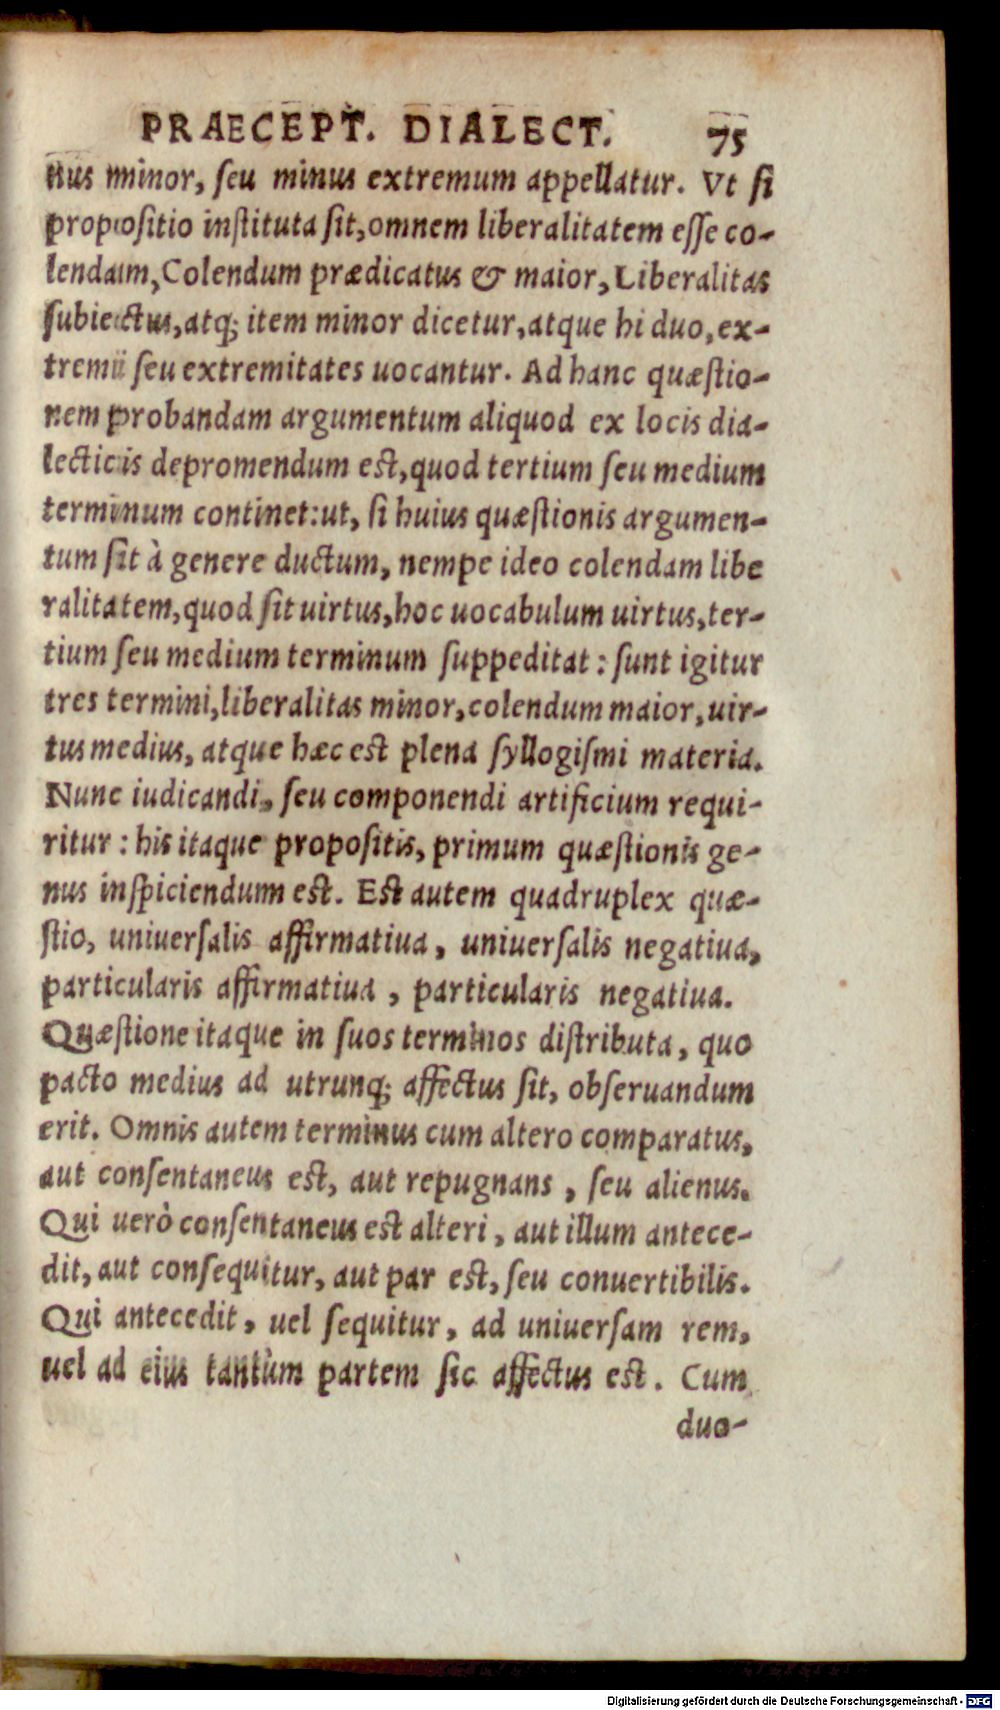 PRAECEPT. DIALECT. 75
nus minor, ſeu minus extremum appellatur. Vt ſi
propoſitio inſtituta ſit, omnem liberalitatem eſſe co-
lendam, Colendum prædicatus & maior, Liberalitas
ſubiectus, atq; item minor dicetur, atque hi duo, ex-
tremi ſeu extremitates uocantur. Ad hanc quæſtio-
nem probandam argumentum aliquod ex locis dia-
lecticis depromendum eſt, quod tertium ſeu medium
terminum continet: ut, ſi huius quæſtionis argumen-
tum ſit à genere ductum, nempe ideo colendam libe
ralitatem, quod ſit uirtus, hoc uocabulum uirtus, ter-
tium ſeu medium terminum ſuppeditat: ſunt igitur
tres termini, liberalitas minor, colendum maior, uir-
tus medius, atque hæc eſt plena ſyllogiſmi materia.
Nunc iudicandi, ſeu componendi artificium requi-
ritur: his itaque propoſitis, primum quæſtionis ge-
nus inſpiciendum eſt. Eſt autem quadruplex quæ-
ſtio, uniuerſalis affirmatiua, uniuerſalis negatiua,
particularis affirmatiua, particularis negatiua.
Quæſtione itaque in ſuos terminos diſtributa, quo
pacto medius ad utrunq; affectus ſit, obſeruandum
erit. Omnis autem terminus cum altero comparatus,
aut conſentaneus eſt, aut repugnans, ſeu alienus.
Qui uerò conſentaneus eſt alteri, aut illum antece-
dit, aut conſequitur, aut par eſt, ſeu conuertibilis.
Qui antecedit, uel ſequitur, ad uniuerſam rem,
uel ad eius tantùm partem ſic affectus eſt. Cum
duo-
Digitalisierung gefördert durch die Deutsche Forschungsgemeinschaft - DFG